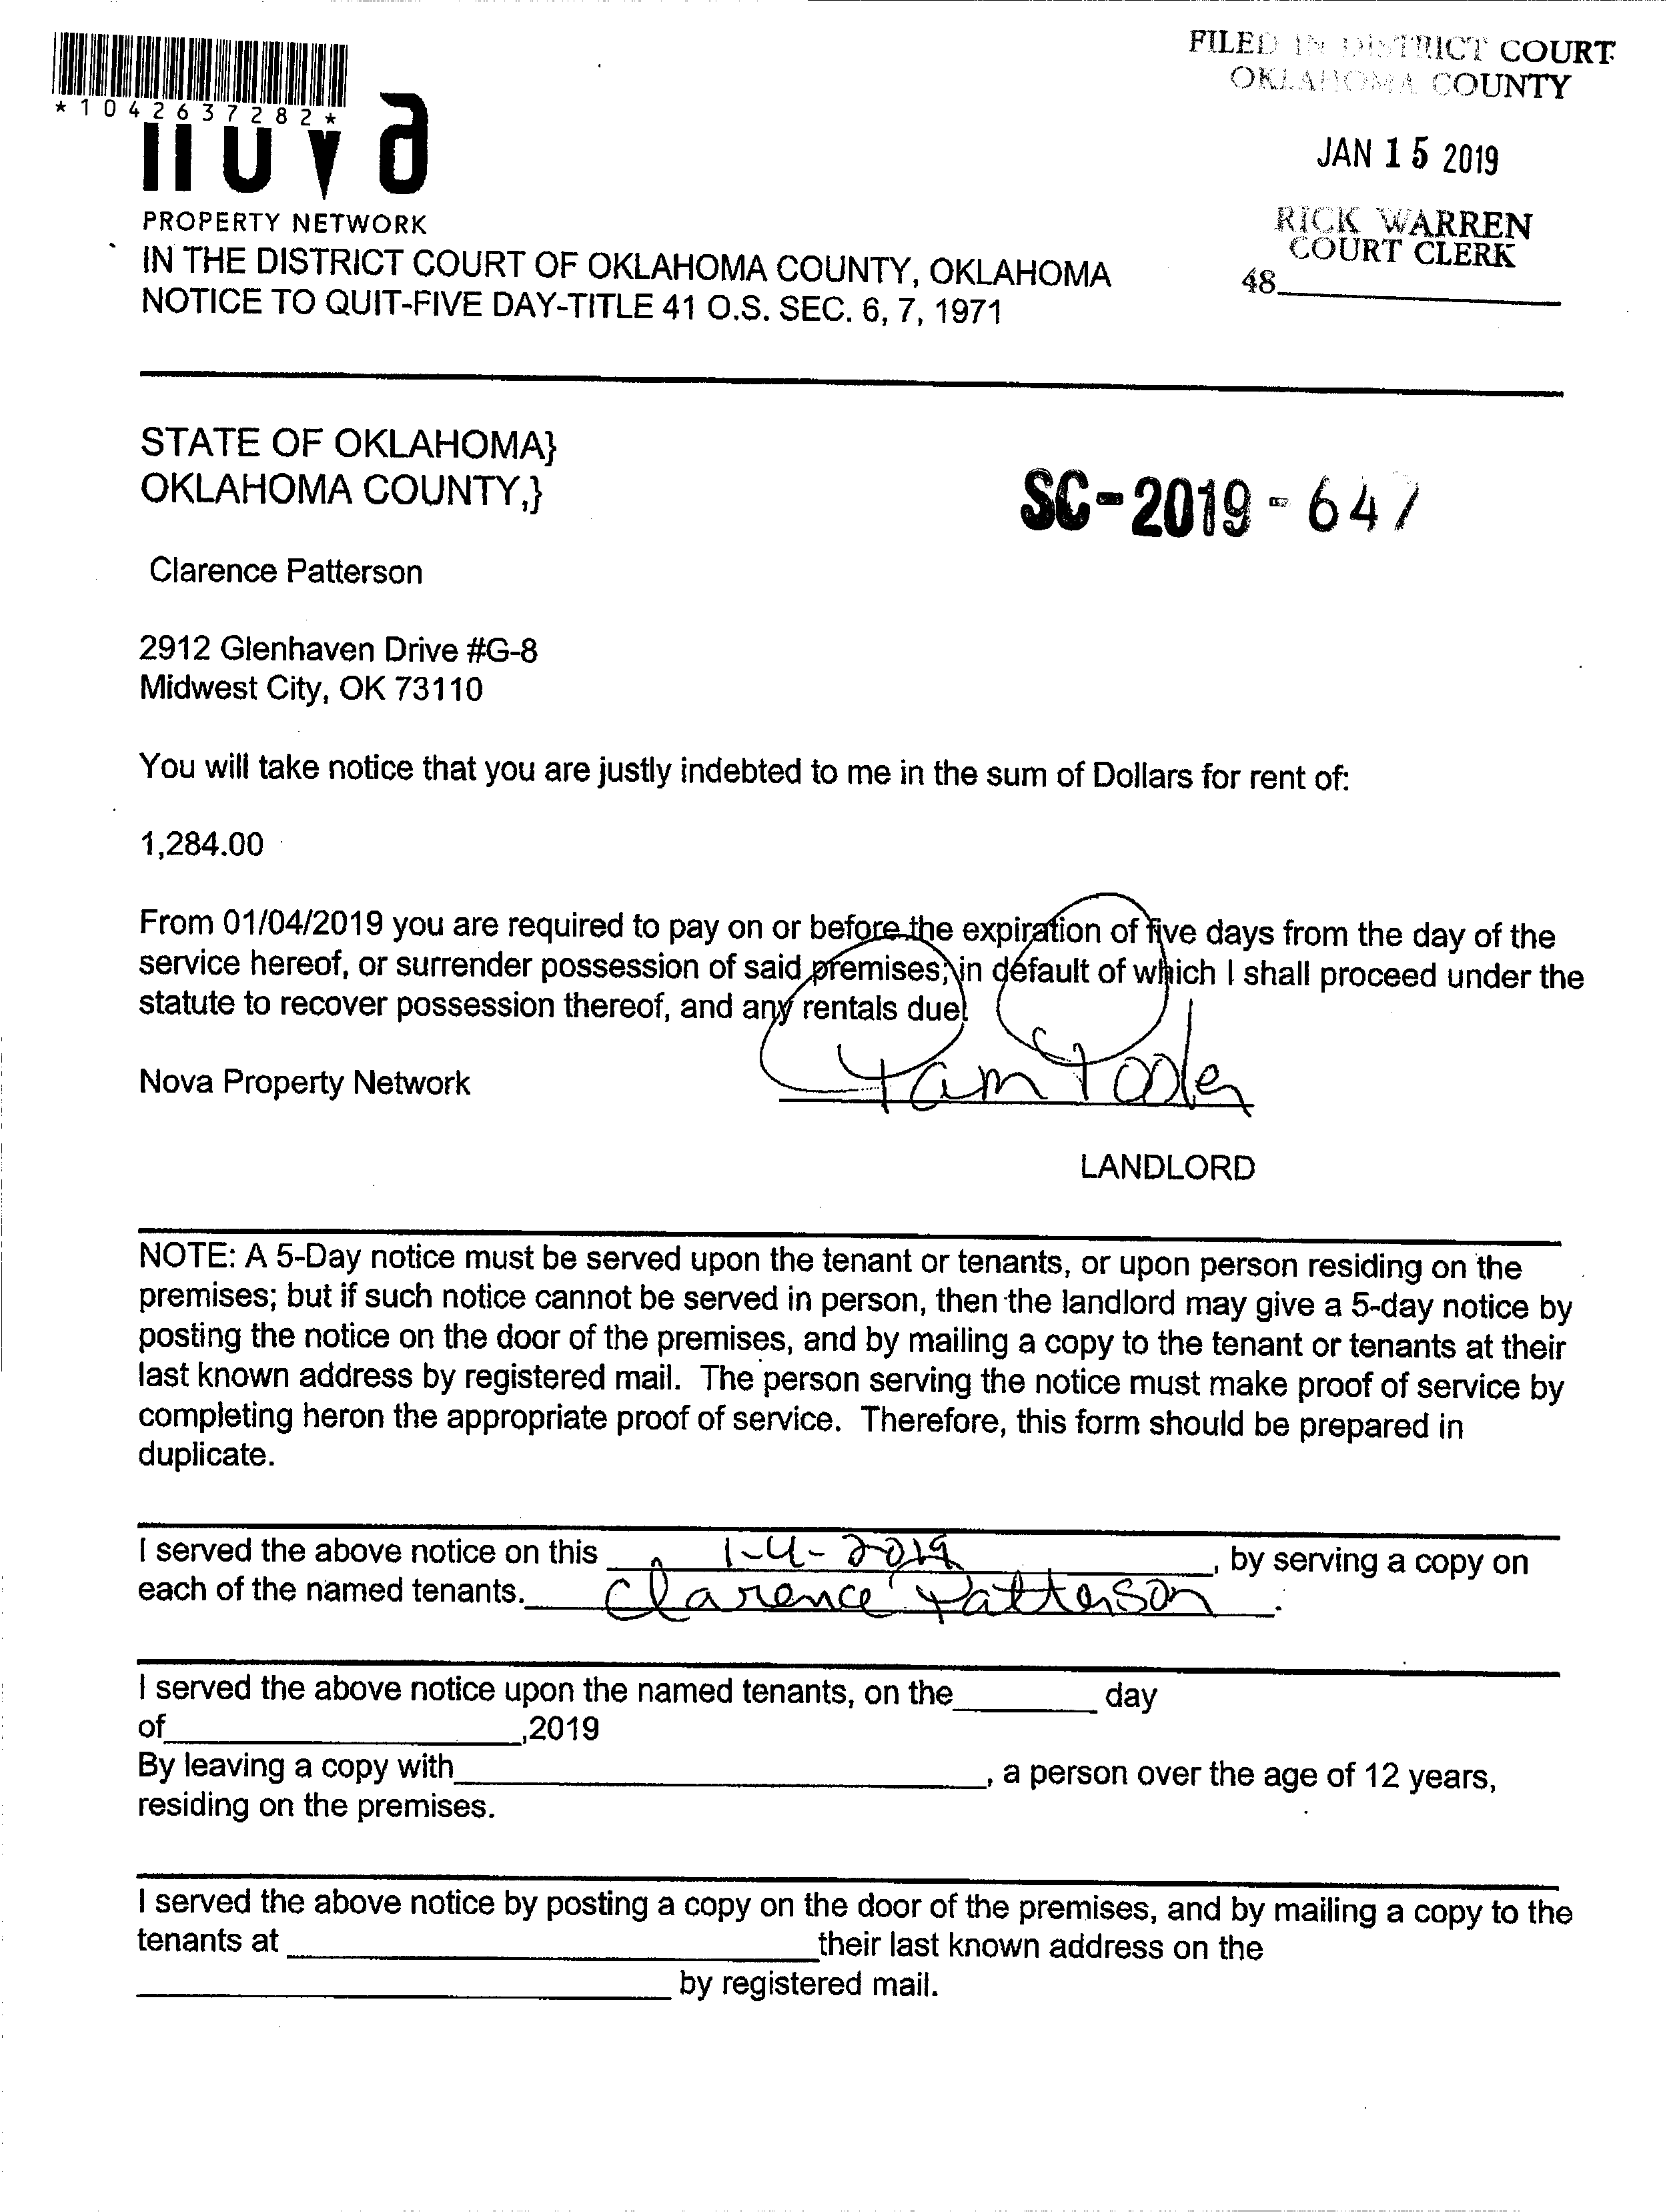 FILED IN DISTRICT COURT
OKLAHOMA COUNTY
*1042637282*
nova
JAN 15 2019
PROPERTY NETWORK
RICK WARREN
COURT CLERK
48
IN THE DISTRICT COURT OF OKLAHOMA COUNTY, OKLAHOMA
NOTICE TO QUIT-FIVE DAY-TITLE 41 O.S. SEC. 6, 7, 1971
STATE OF OKLAHOMA}
OKLAHOMA COUNTY,}
SC-2019-647
Clarence Patterson
2912 Glenhaven Drive #G-8
Midwest City, OK 73110
You will take notice that you are justly indebted to me in the sum of Dollars for rent of:
1,284.00
From 01/04/2019 you are required to pay on or before the expiration of five days from the day of the
service hereof, or surrender possession of said premises; in default of which I shall proceed under the
statute to recover possession thereof, and any rentals due.
Nova Property Network
LANDLORD
NOTE: A 5-Day notice must be served upon the tenant or tenants, or upon person residing on the
premises; but if such notice cannot be served in person, then the landlord may give a 5-day notice by
posting the notice on the door of the premises, and by mailing a copy to the tenant or tenants at their
last known address by registered mail. The person serving the notice must make proof of service by
completing heron the appropriate proof of service. Therefore, this form should be prepared in
duplicate.
I served the above notice on this 1-4-2019, by serving a copy on
each of the named tenants. Clarence Patterson.
I served the above notice upon the named tenants, on the________ day
of____________________,2019
By leaving a copy with______________________________, a person over the age of 12 years,
residing on the premises.
I served the above notice by posting a copy on the door of the premises, and by mailing a copy to the
tenants at ______________________________their last known address on the
______________________________ by registered mail.